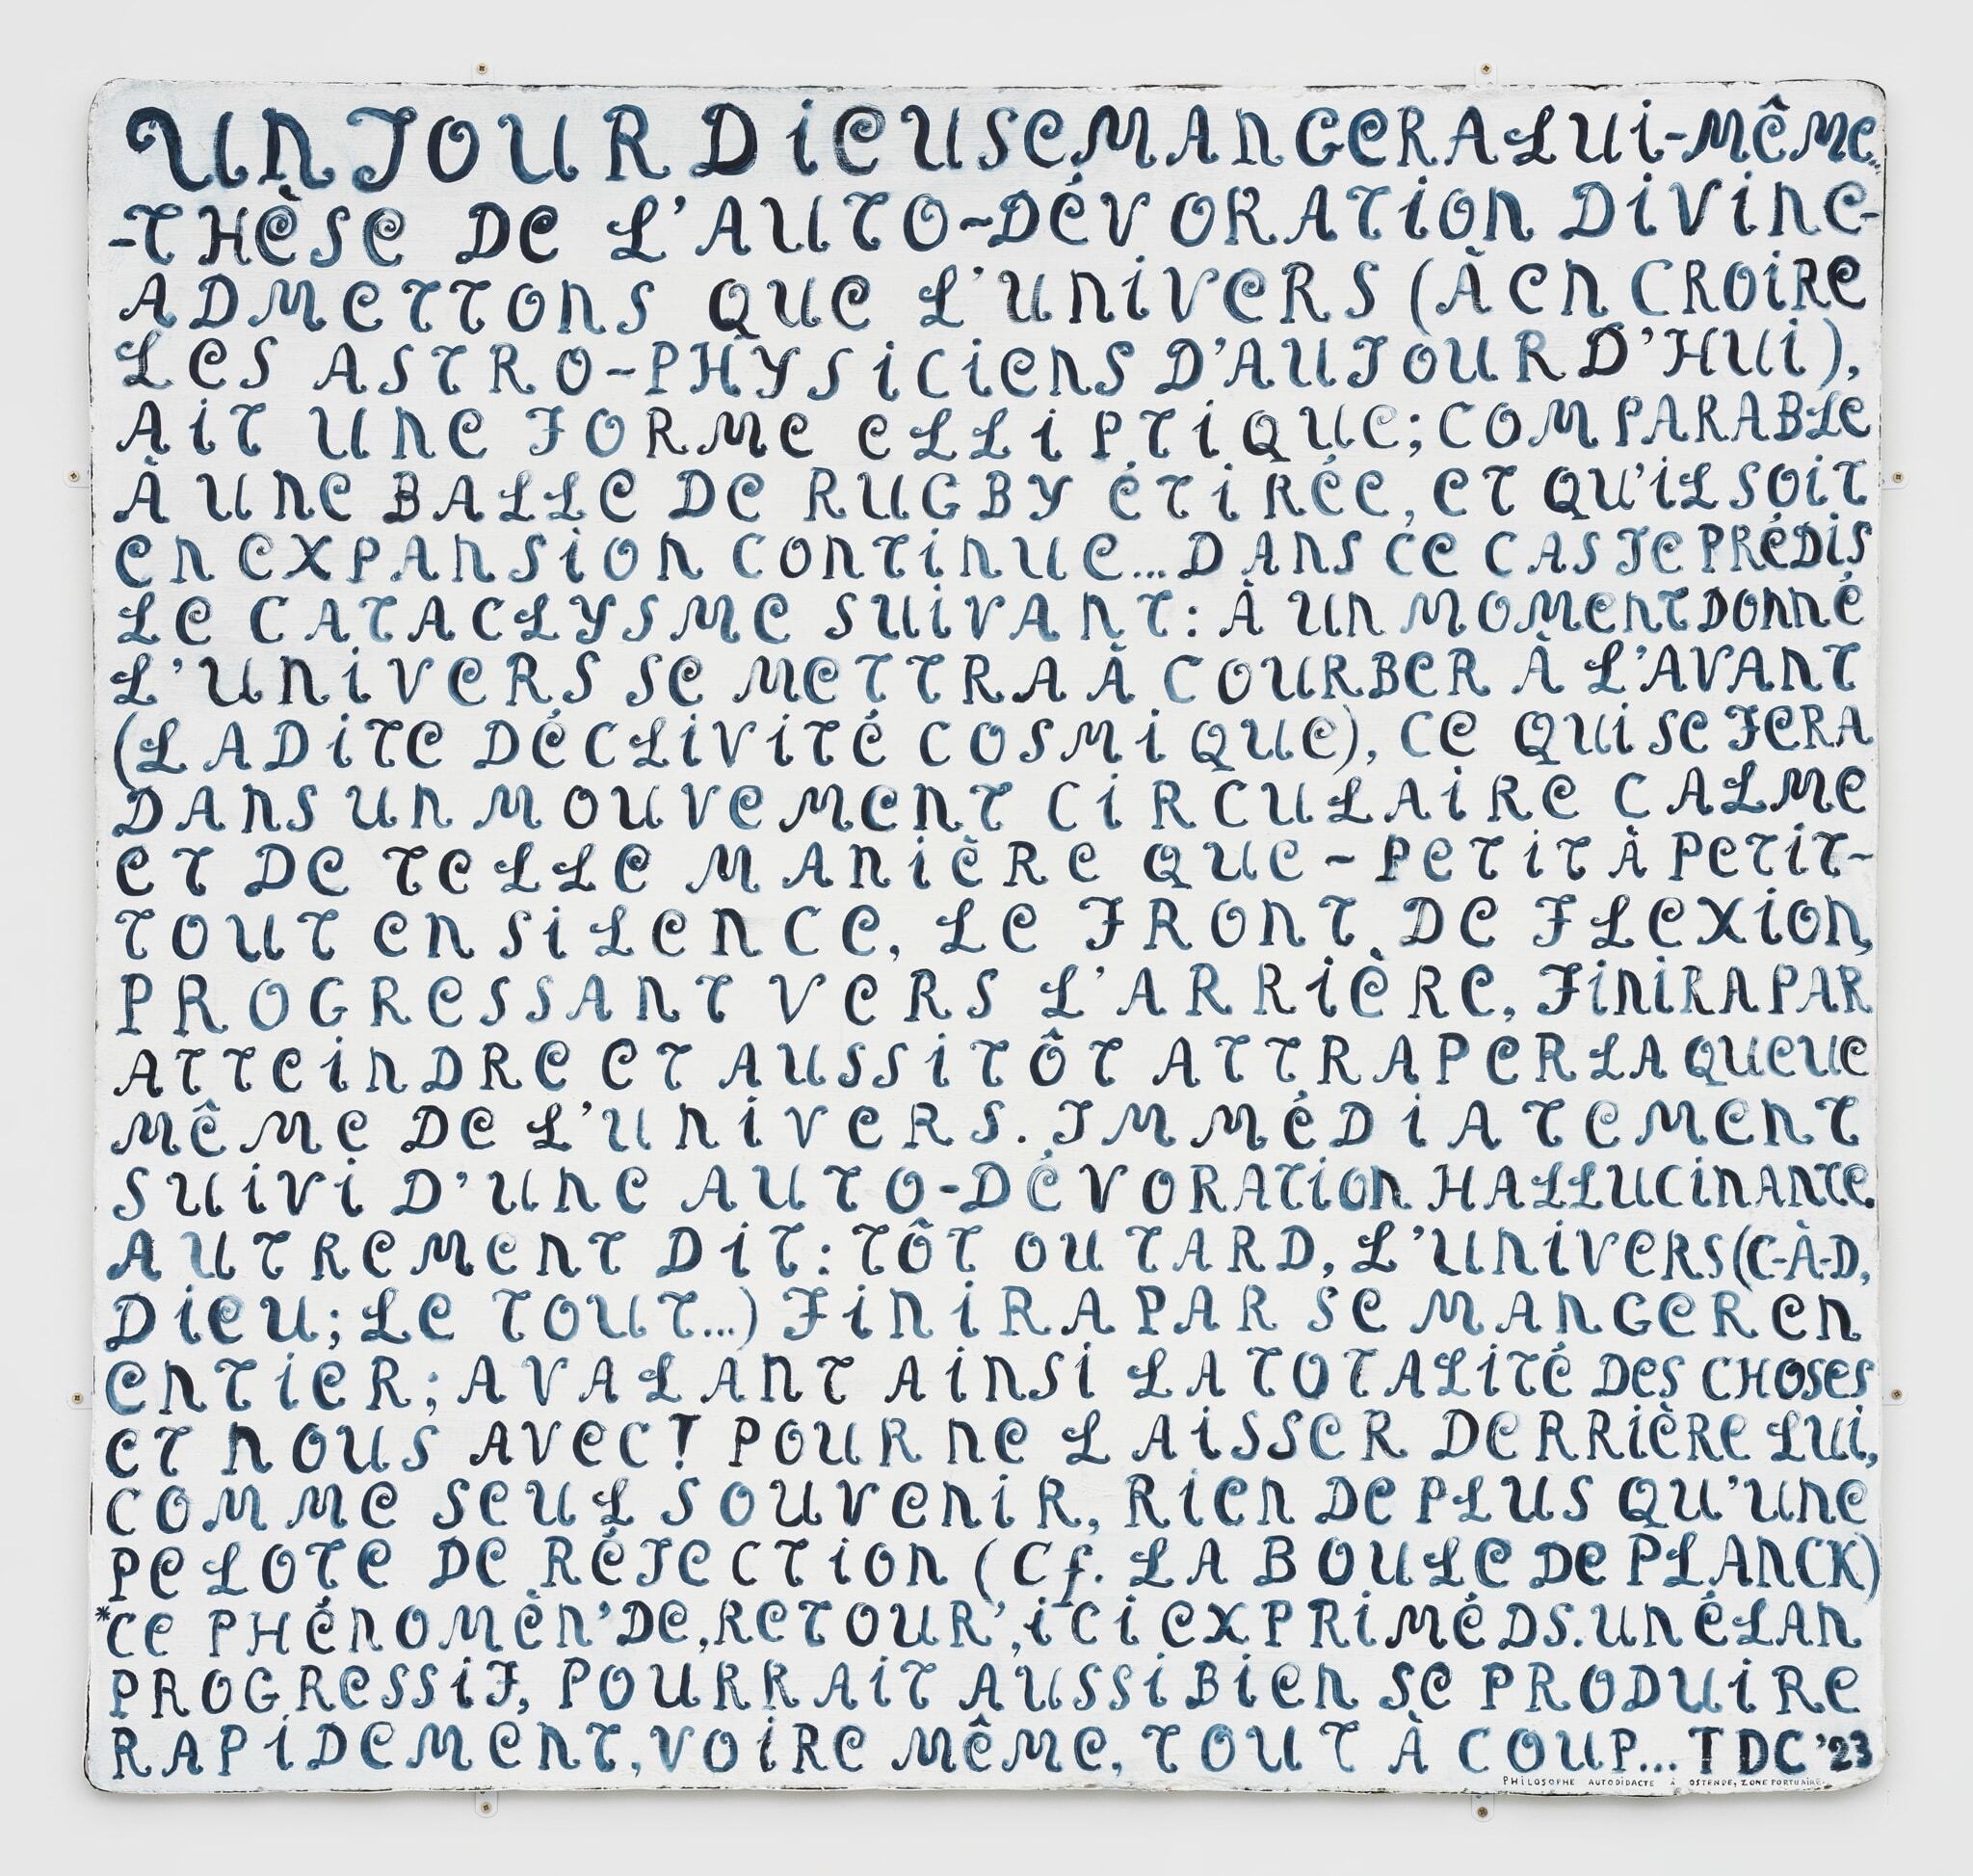 UN JOUR DIEU SE MANGERA LUI-MÊME...
-THÈSE DE L'AUTO-DÉVORATION DIVINE-
ADMETTONS QUE L'UNIVERS (À EN CROIRE
LES ASTRO-PHYSICIENS D'AUJOURD'HUI),
AIT UNE FORME ELLIPTIQUE; COMPARABLE
À UNE BALLE DE RUGBY ÉTIRÉE, ET QU'IL SOIT
EN EXPANSION CONTINUE... DANS CE CAS JE PRÉDIS
LE CATACLYSME SUIVANT: À UN MOMENT DONNÉ
L'UNIVERS SE METTRA À COURBER À L'AVANT
(LADITE DÉCLIVITÉ COSMIQUE), CE QUI SE FERA
DANS UN MOUVEMENT CIRCULAIRE CALME
ET DE TELLE MANIÈRE QUE - PETIT À PETIT-
TOUT EN SILENCE, LE FRONT DE FLEXION,
PROGRESSANT VERS L'ARRIÈRE, FINIRA PAR
ATTEINDRE ET AUSSITÔT ATTRAPER LA QUEUE
MÊME DE L'UNIVERS. IMMÉDIATEMENT
SUIVI D'UNE AUTO-DÉVORATION HALLUCINANTE.
AUTREMENT DIT: TÔT OU TARD, L'UNIVERS (C-À-D,
DIEU; LE TOUT...) FINIRA PAR SE MANGER EN
ENTIER; AVALANT AINSI LA TOTALITÉ DES CHOSES
ET NOUS AVEC! POUR NE LAISSER DERRIÈRE LUI,
COMME SEUL SOUVENIR, RIEN DE PLUS QU'UNE
PELOTE DE RÉJECTION (Cf. LA BOULE DE PLANCK)
*CE PHÉNOMÈN' DE ,RETOUR', ICI EXPRIMÉ DS. UN ÉLAN
PROGRESSIF, POURRAIT AUSSI BIEN SE PRODUIRE
RAPIDEMENT, VOIRE MÊME, TOUT À COUP... TDC '23
PHILOSOPHE AUTODIDACTE À OSTENDE, ZONE PORTUAIRE.